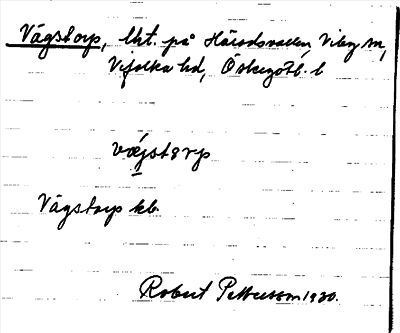 Vägstorp, lht. på Häradsvallen, Viby sn,
Vifolka hd, Östergötl. l
vǽgstørp
Vägstorp kb.
Robert Pettersson 1930.